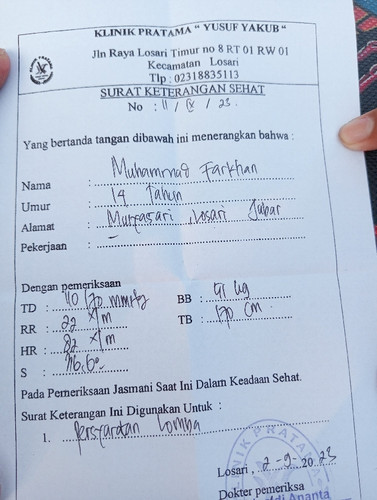 KLINIK PRATAMA " YUSUF YAKUB "
Jln Raya Losari Timur no 8 RT 01 RW 01
Kecamatan Losari
Tlp : 02318835113
SURAT KETERANGAN SEHAT
No : 11 / IX / 23.
Yang bertanda tangan dibawah ini menerangkan bahwa :
Nama : Muhammad Farkhan
Umur : 14 Tahun
Alamat : Losari Jabar
Pekerjaan : -
Dengan pemeriksaan
TD : 110/70 mmHg BB : 41 kg
RR : 22 x/m TB : 170 cm
HR : 82 x/m
S : 36.6°
Pada Pemeriksaan Jasmani Saat Ini Dalam Keadaan Sehat.
Surat Keterangan Ini Digunakan Untuk :
1. Persyaratan Lomba
KLINIK PRATAMA
Losari , 2-9-2023
Dokter pemeriksa
Ananta